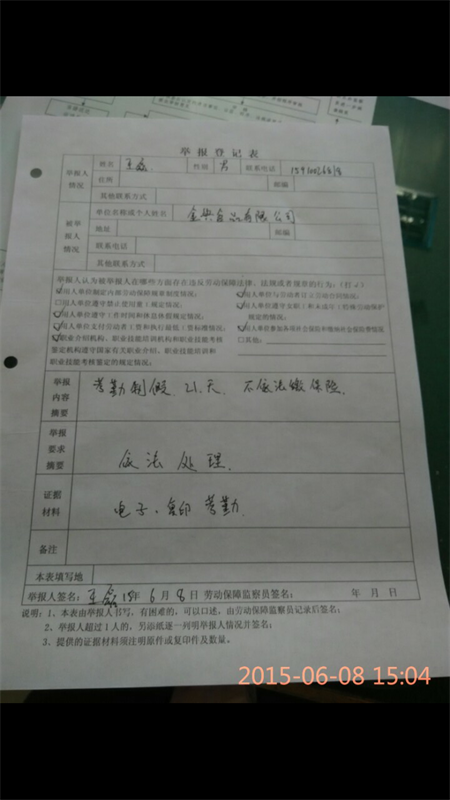 举报登记表
举报人情况 姓名 王磊 性别 男 联系电话
住所 邮编
其他联系方式
被举报人情况 单位名称或个人姓名 金华食品有限公司
地址 邮编
联系电话
其他联系方式
举报人认为被举报人在哪些方面存在违反劳动保障法律、法规或者规章的行为:(打√)
用人单位制定内部劳动保障规章制度情况; 用人单位与劳动者订立劳动合同情况;
用人单位遵守禁止使用童工规定情况; 用人单位遵守女职工和未成年工特殊劳动保护
用人单位遵守工作时间和休息休假规定情况; 规定的情况;
用人单位支付劳动者工资和执行最低工资标准情况; 用人单位参加各项社会保险和缴纳社会保险费情况
职业介绍机构、职业技能培训机构和职业技能考核 □其他:
鉴定机构遵守国家有关职业介绍、职业技能培训和
职业技能考核鉴定的规定情况;
举报内容摘要 考勤制假. 21.天. 不依法缴保险.
举报要求摘要 依法处理.
证据材料 电子、复印 考勤.
备注
本表填写地
举报人签名: 王磊 15年 6 月 8 日 劳动保障监察员签名: 年 月 日
说明:1、本表由举报人书写,有困难的,可以口述,由劳动保障监察员记录后签名;
2、举报人超过1人的,另添纸逐一列明举报人情况并签名;
3、提供的证据材料须注明原件或复印件及数量。
2015-06-08 15:04